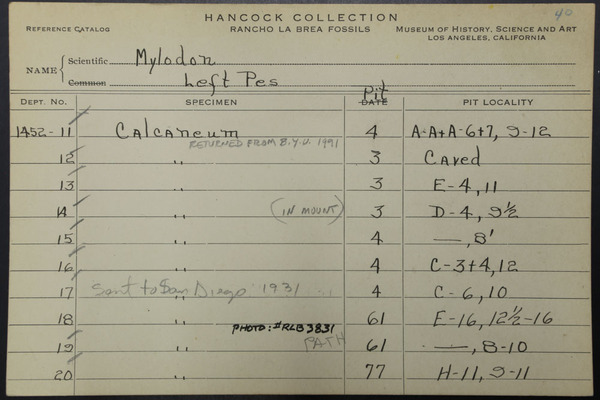 40
HANCOCK COLLECTION
REFERENCE CATALOG RANCHO LA BREA FOSSILS MUSEUM OF HISTORY, SCIENCE AND ART
LOS ANGELES, CALIFORNIA
NAME Scientific Mylodon
Common Left Pes
Pit
DEPT. NO. SPECIMEN DATE PIT LOCALITY
1452-11 Calcaneum 4 A-A+A-6+7, 9-12
RETURNED FROM B.Y.U. 1991
12 " 3 Caved
13 " 3 E-4, 11
14 " (IN MOUNT) 3 D-4, 9½
15 " 4 —, 8'
16 " 4 C-3+4, 12
17 Sent to San Diego 1931 4 C-6, 10
18 " 61 E-16, 12½-16
PHOTO: #RLB3831
19 " PATH 61 —, 8-10
20 " 77 H-11, 9-11